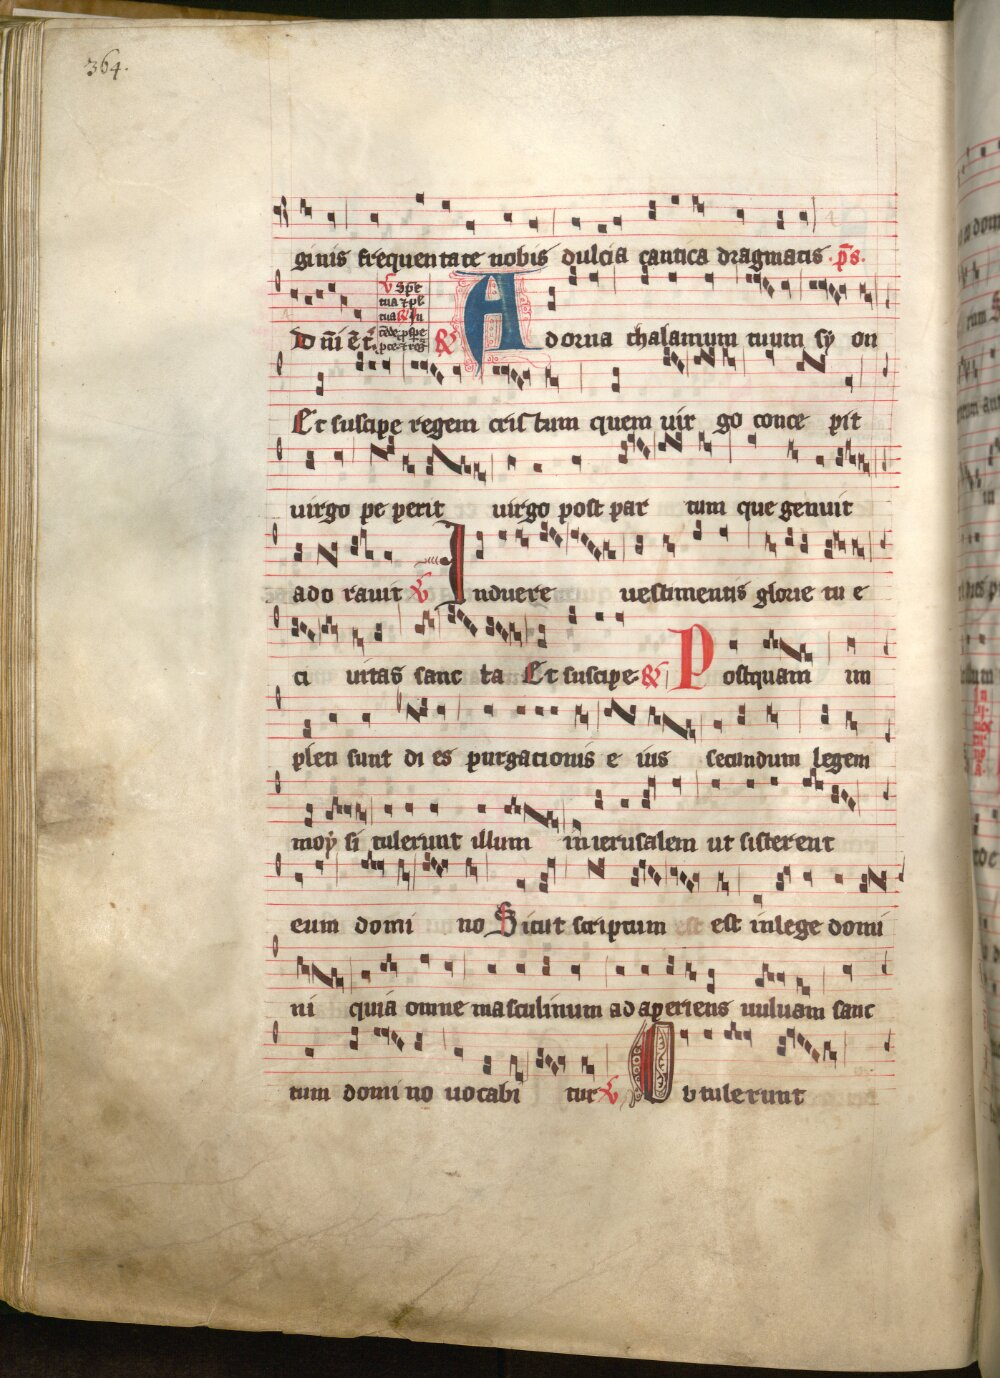 364.
ginis frequentate nobis dulcia cantica dragmatis. p̄s.
D n̄i ē t. V Spe tua ⁊ pl tua In & Adorna thalamum tuum sẏ on
Et suscipe regem cris tum quem uir go conce pit
uirgo pe perit uirgo post par tum que genuit
ado rauit V Induere uestimentis glorie tu e
ci uitas sanc ta Et suscipe & Postquam im
pleti sunt di es purgationis e ius secundum legem
moẏ si tulerunt illum in ierusalem ut sisterent
eum domi no Sicut scriptum est est in lege domi
ni quia omne masculinum ad aperiens uuluam sanc
tum domi no uocabi tur V Obtulerunt